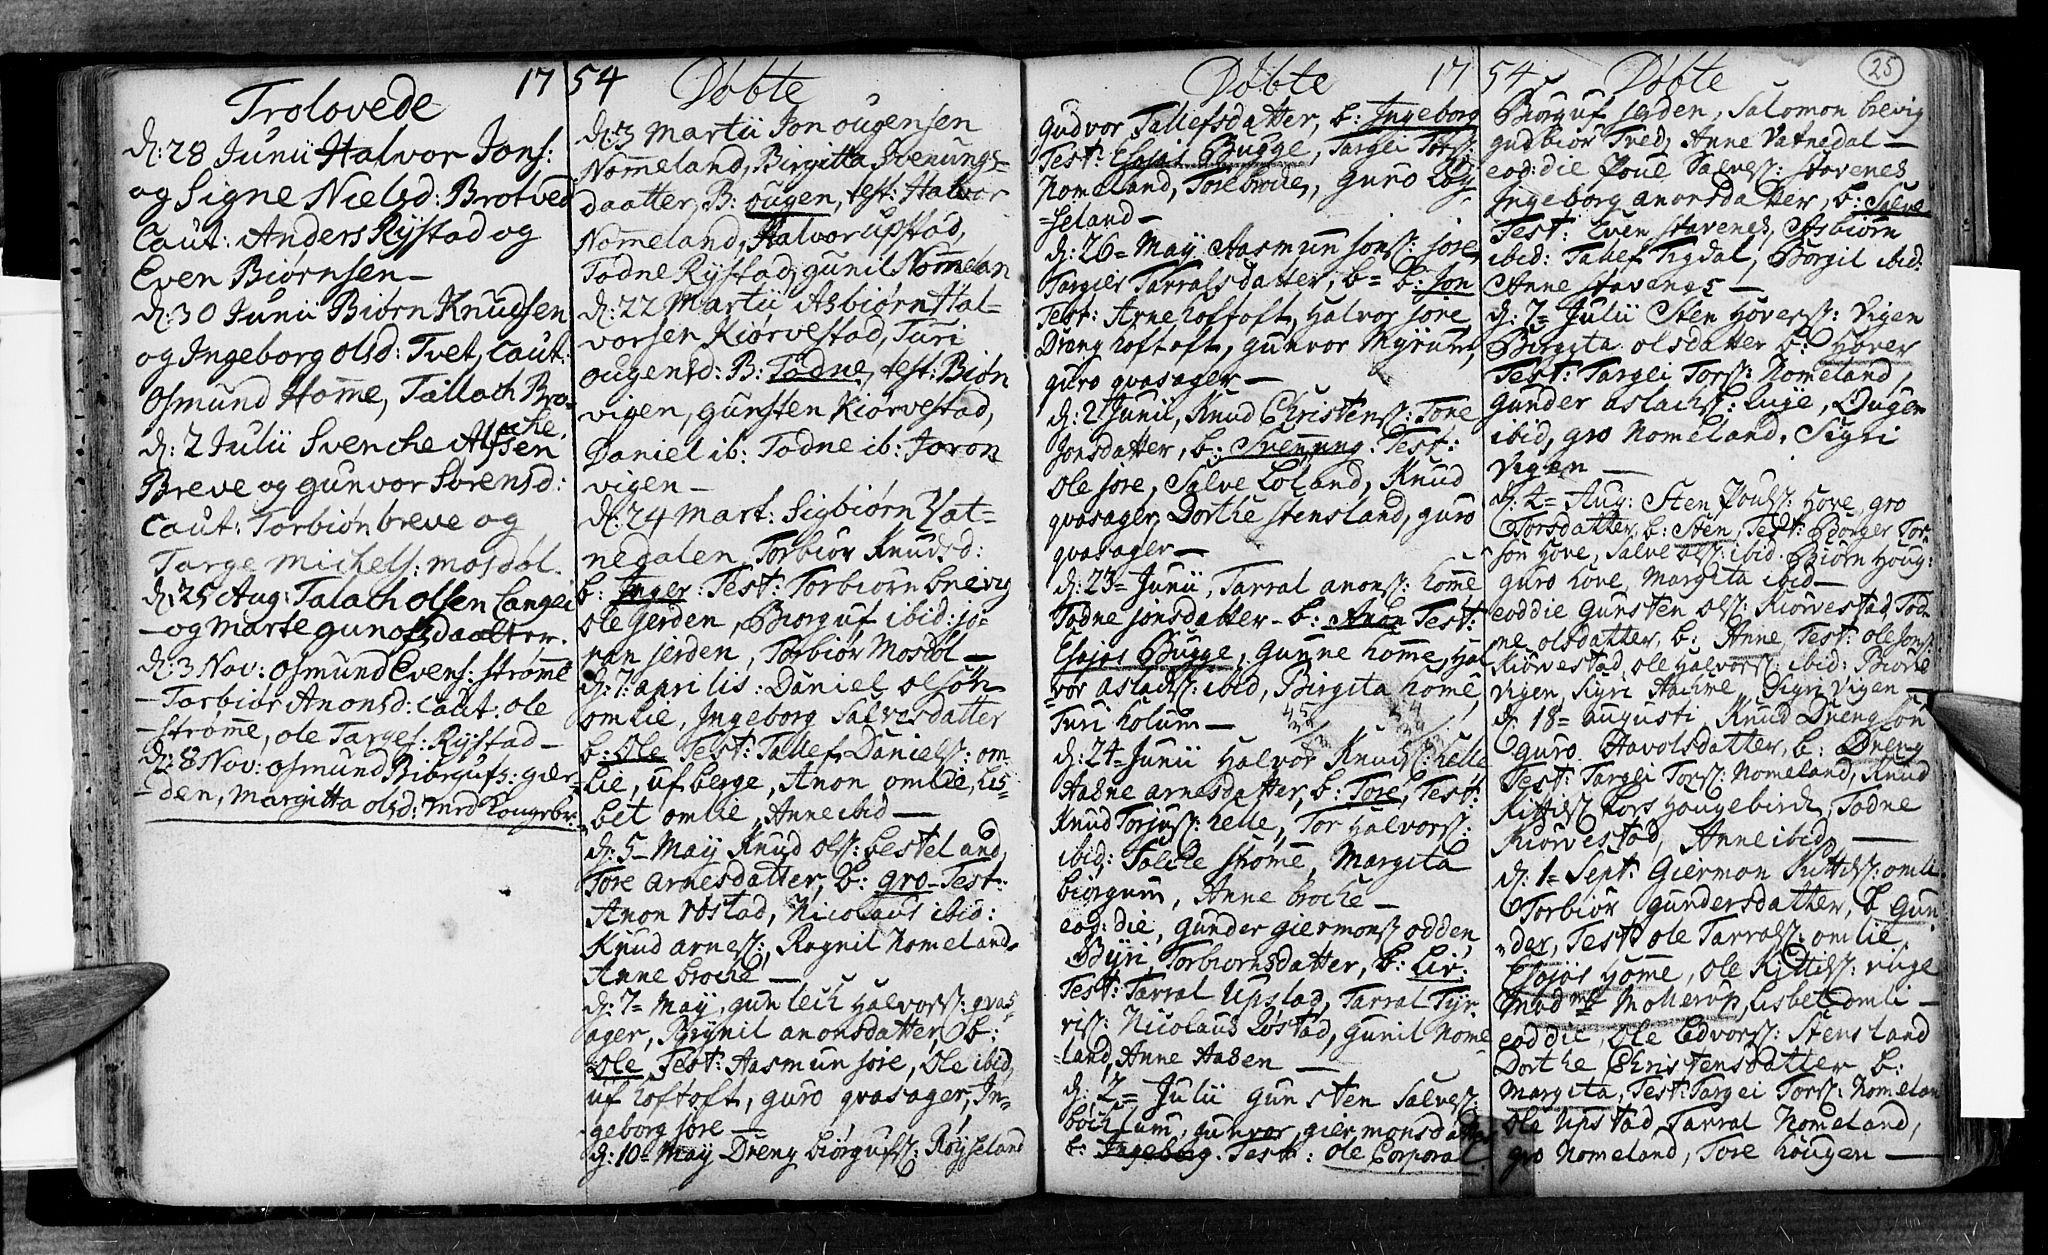 Trolovede
1754
d: 28 Junii Halvor Jons:
og Signe Nielsd: Brotved
Caut: Anders Rystad og
Even Biørnsen –
d: 30 Junii Biørn Knudsen
og Ingeborg olsd: Tvet, Caut:
Osmund Homme, Tallach Bro-
che.
d: 2 Julii Svenche Alfsen
Breve og gunvor Sørensd:
Caut: Torbiøn breve og
Targe Michels: mosdøl.
d: 25 Aug: Talach olsen Langei
og Marte gunolfsdaatter.
d: 3 Nov: Osmund Evens: Strømme
– Torbiør Anonsd: Caut: ole
Strømme, ole Targes: Rystad –
d: 8 Nov: Osmund Biørgufs: gier-
den, Margitta olsd: med Kongebr:
Døbte
d: 3 Martii Jon ougensen
Nommeland, Birgitta Svenungs-
daatter, B: ougen, test: Halvor
Nommeland, Halvor upstad,
Todne Rystad, gunil Nommelan
d: 22 Martii Asbiørn Hal-
vorsen Kiørvestad, Turi
ougensd: B: Todne, test: Biøn
vigen, gunsten Kiørvestad,
Daniel ib: Todne ib: Joron
vigen –
d: 24 Mart: Sigbiørn Vat-
nedalen, Torbiør Knudsd:
b: Inger: Test: Torbiørn brevig
ole Jerden, Biørguf ibid: jo-
ran jerden, Torbiør Mosdøl –
d: 7. aprilis: Daniel olsøn
omlie, Ingeborg Salvesdatter
b: Ole Test: Tallef Daniels: om-
lie, uf berge, Anon omlie, Lis-
bet omlie, Anne ibid –
d: 5 – May Knud ols: besteland,
Tore arnesdatter, b: gro – Test:
Anon røstad, Nicolaus ibid:
Knud arnes: Rognil homeland
Anne broche –
d: 7 = May, gunlech Halvors: qvas-
ager, Brynil anonsdatter, b:
Ole, Test: Aasmun jore, Ole ibid,
uf hoftoft, guro qvasager, In-
geborg jore –
d: 10 = May Dreng biørgufs: Røysseland
Døbte
1754
Gudvor Tallefsdatter, b: Ingeborg
Test: Esajas Bugge, Targei Tors:
Nomeland, Tore brode, Guro Røy-
seland –
d: 26 = May Aasmun jons: jore
Targier Tarralsdatter, b = b: Jon
Test: Arne hoftoft, halvor jore
Dreng hoftoft, gunvor Myrum,
guro qvasager –
d: 2 Junii, Knud Christens: Tone
Jonsdatter, b: Svennung. Test:
Ole jore, Salve Loland, Knud
qvasager, Dorthe stensland, guro
qvasager –
d: 23 = Junii, Tarral anons: home
Todne jonsdatter – b: Anon Test:
Esajas Bugge, Gunne homme, Hal
vor aslachs: ibid, Birgita home,
Turi holum –
d: 24 = Junii Halvor Knuds: helle
Aasne arnesdatter, b: Tore, Test:
Knud Torjus: helle, Tor Halvors:
ibid: Talche strøme, Margita
biørgum, Anne broche –
eod: die, Gunder giermons: odden,
Gyri, Torbiornsdatter, b: Liv:
Test: Tarral Upstad, Tarral Tyr-
ris: Nicolaus Løstad, Gunil Nome-
land, Anne Aasen –
d: 2 = Julii Gunsten Salves:
gunvor giermonsdatter
b: Ingeborg. Test: ole Corporal
Døbte
25
Biørguf jerden, Salomon brevig
gudbiør Tved, Anne Vatnedal –
eod: die Poul Salves: stavenes
Ingeborg anonsdatter, b: Salve
Test: Even stavenes, Asbiørn
ibid: Tallef Tigdal, Børgil ibid:
Anne stavenes –
d: 7 = Julii Sten Hovers: Vigen
Birgita olsdatter b: Hover
Test: Targei Tors: Nomeland,
Gunder aslachs: Rige, Ougen
ibid, gro Nomeland, Sigri
Vigen –
d: 4 = Aug: Sten Pouls: Hove, gro
Torsdatter, b: Sten, Test: Børger Tor-
son Hove, Salve ols: ibid. Biørn Houg:
guro hove, Margita ibid –
eod die Gunsten ols: Kiørvestad, Tod-
ne olsdatter, b: Anne Test: ole Jons:
Kiørvestad, ole Halvors: ibid: Biørn
Vigen, Sigri Hachme, Sigri Vigen –
d: 18 = augusti, Knud Drengson
guro Havolsdatter, b: Dreng
Test: Targei Tors: Nomeland, Knud
Kittils: Todne
Kiørvestad, Anne ibid, –
d: 1 = Sept: Giermon Kittils: omli
Torbiør gundersdatter, b Gun-
der, Test: ole Tarrals: omlie,
Esajas Homme, Ole Kittils: ruge
mad me Mollerup, Lisbet omli –
eod die, Ole Edvors: Stensland
Dorthe Christensdatter, b:
Margita, Test: Targei Tors: Nomelan
Ole Upstad, Tarral Nomeland,
gro Nomeland, Tore hougen –